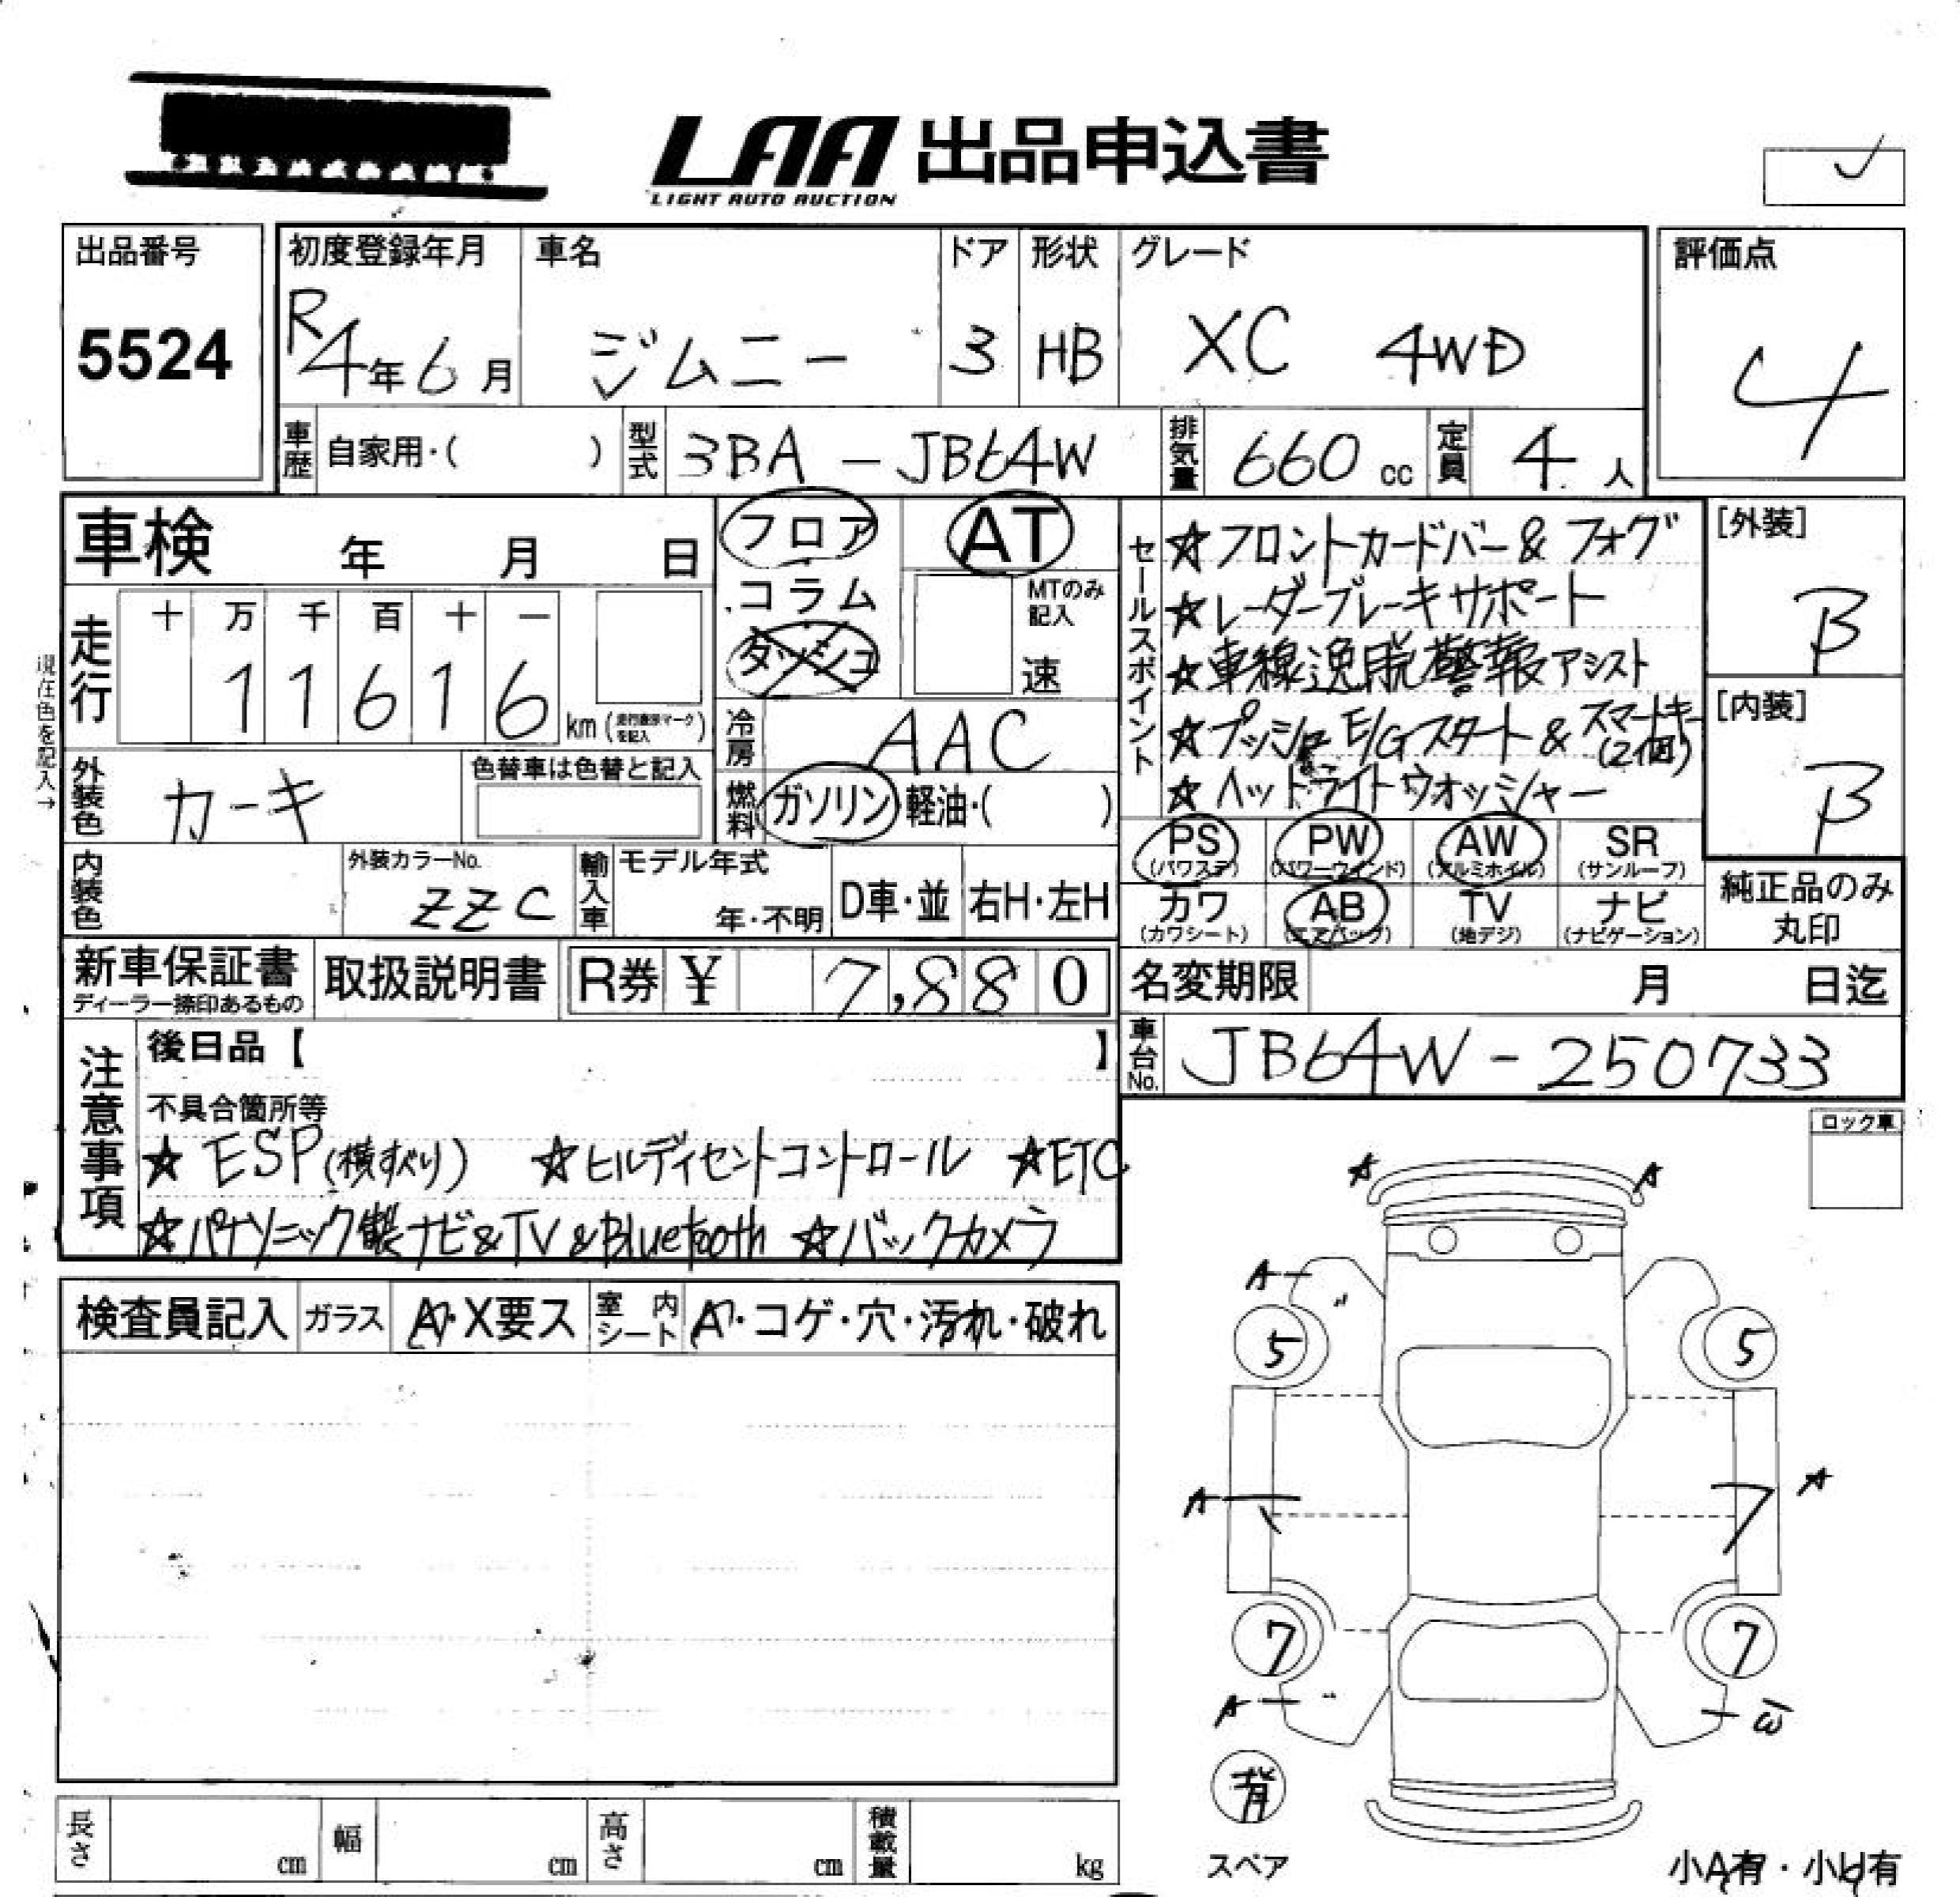 LAA 出品申込書
LIGHT AUTO AUCTION
出品番号
5524
初度登録年月 車名 ドア 形状 グレード
R4年6月 ジムニー 3 HB XC 4WD
評価点
4
車歴 自家用・( ) 型式 3BA-JB64W 排気量 660cc 定員 4人
車検 年 月 日
フロア
コラム
ダッシュ
AT
MTのみ記入
速
走行 十 万 千 百 十 一
11616 km (走行距離マークを記入)
現在色を記入→
冷房 AAC
燃料 ガソリン 軽油・( )
外装色 カーキ 色替車は色替と記入
内装色 外装カラーNo. ZZC
輸入車 モデル年式 年・不明 D車・並 右H・左H
新車保証書 ディーラー捺印あるもの 取扱説明書 R券 ¥ 7,880
セールスポイント
☆フロントカードバー&フォグ
☆レーダーブレーキサポート
☆車線逸脱警報アシスト
☆プッシュE/Gスタート&スマートキー(2個)
☆ヘッドライトウオッシャー
[外装]
B
[内装]
B
PS (パワステ) PW (パワーウインド) AW (アルミホイル) SR (サンルーフ)
カワ (カワシート) AB (エアバッグ) TV (地デジ) ナビ (ナビゲーション)
純正品のみ丸印
名変期限 月 日迄
車台No. JB64W-250733
注意事項
後日品【 】
不具合箇所等
☆ESP(横すべり) ☆ヒルディセントコントロール ☆ETC
☆パナソニック製ナビ&TV&Bluetooth ☆バックカメラ
ロック車
検査員記入 ガラス A・X要ス 室内シート A・コゲ・穴・汚れ・破れ
A A
A
5 5
A A
7 7
A
背
スペア
小A有・小U有
長さ cm 幅 cm 高さ cm 積載量 kg